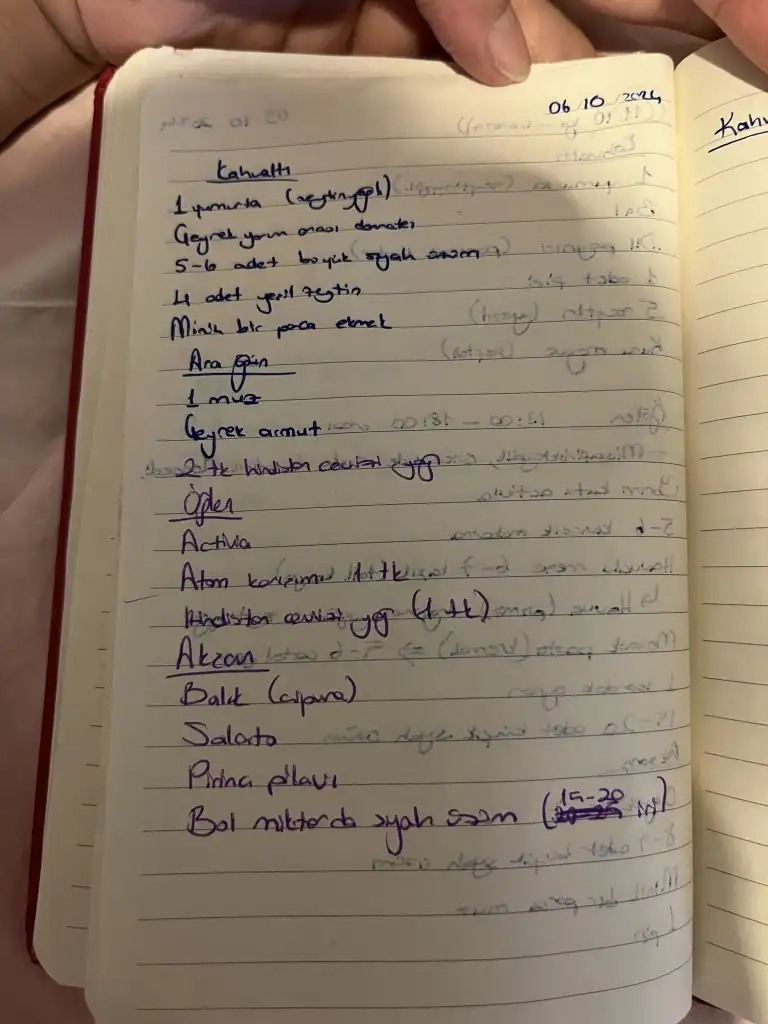 06.10.2024
Kahvaltı
1 yumurta (zeytinyağlı)
Çeyrek yarım arası domates
5-6 adet büyük siyah üzüm
4 adet yeşil zeytin
Minik bir parça ekmek
Ara öğün
1 muz
Çeyrek armut
2 tk hindistan cevizi yağı
Öğlen
Activia
Atom karışımı 1 tk
Hindistan cevizi yağ (1 tk)
Akşam
Balık (çipura)
Salata
Pirinç pilavı
Bol miktarda siyah üzüm (15-20
Kahv